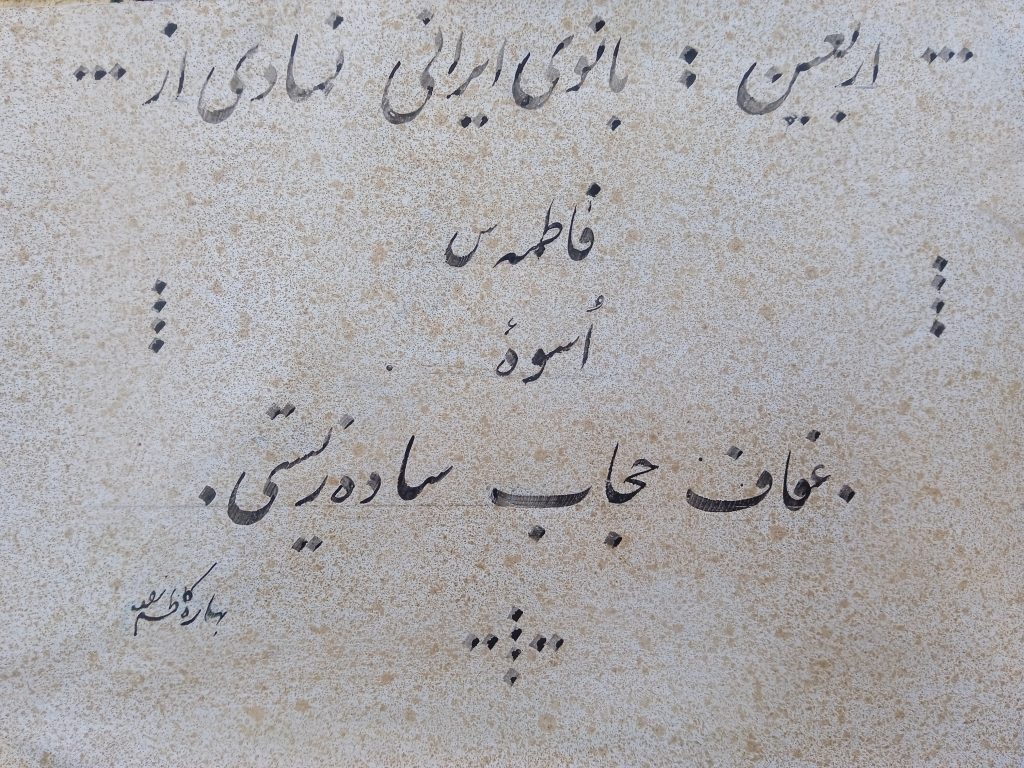 اربعین : بانوی ایرانی نمادی از
فاطمه س
اُسوهٔ
عفاف حجاب ساده زیستی
بهاره کاظم